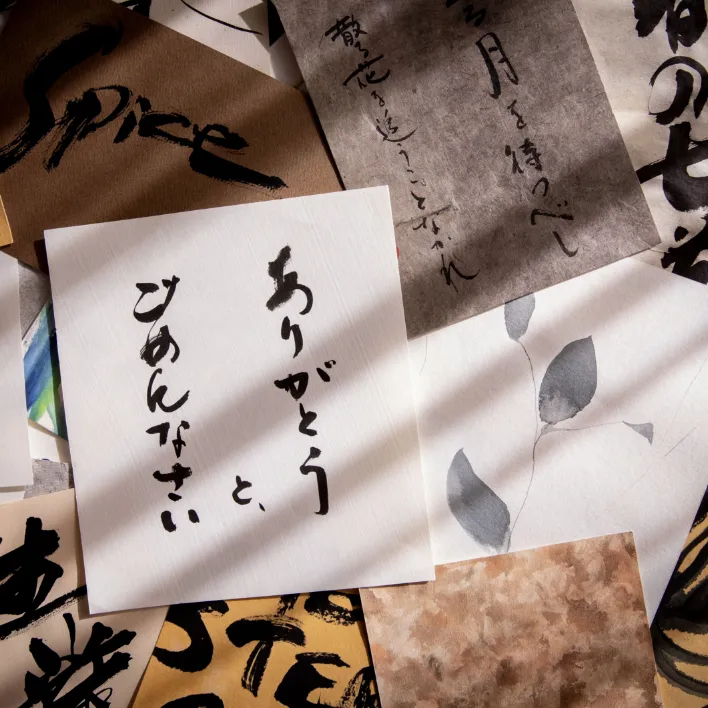 Spice
月を待つべし
散る花を追うことなかれ
ありがとう
と、
ごめんなさい
の七
STE